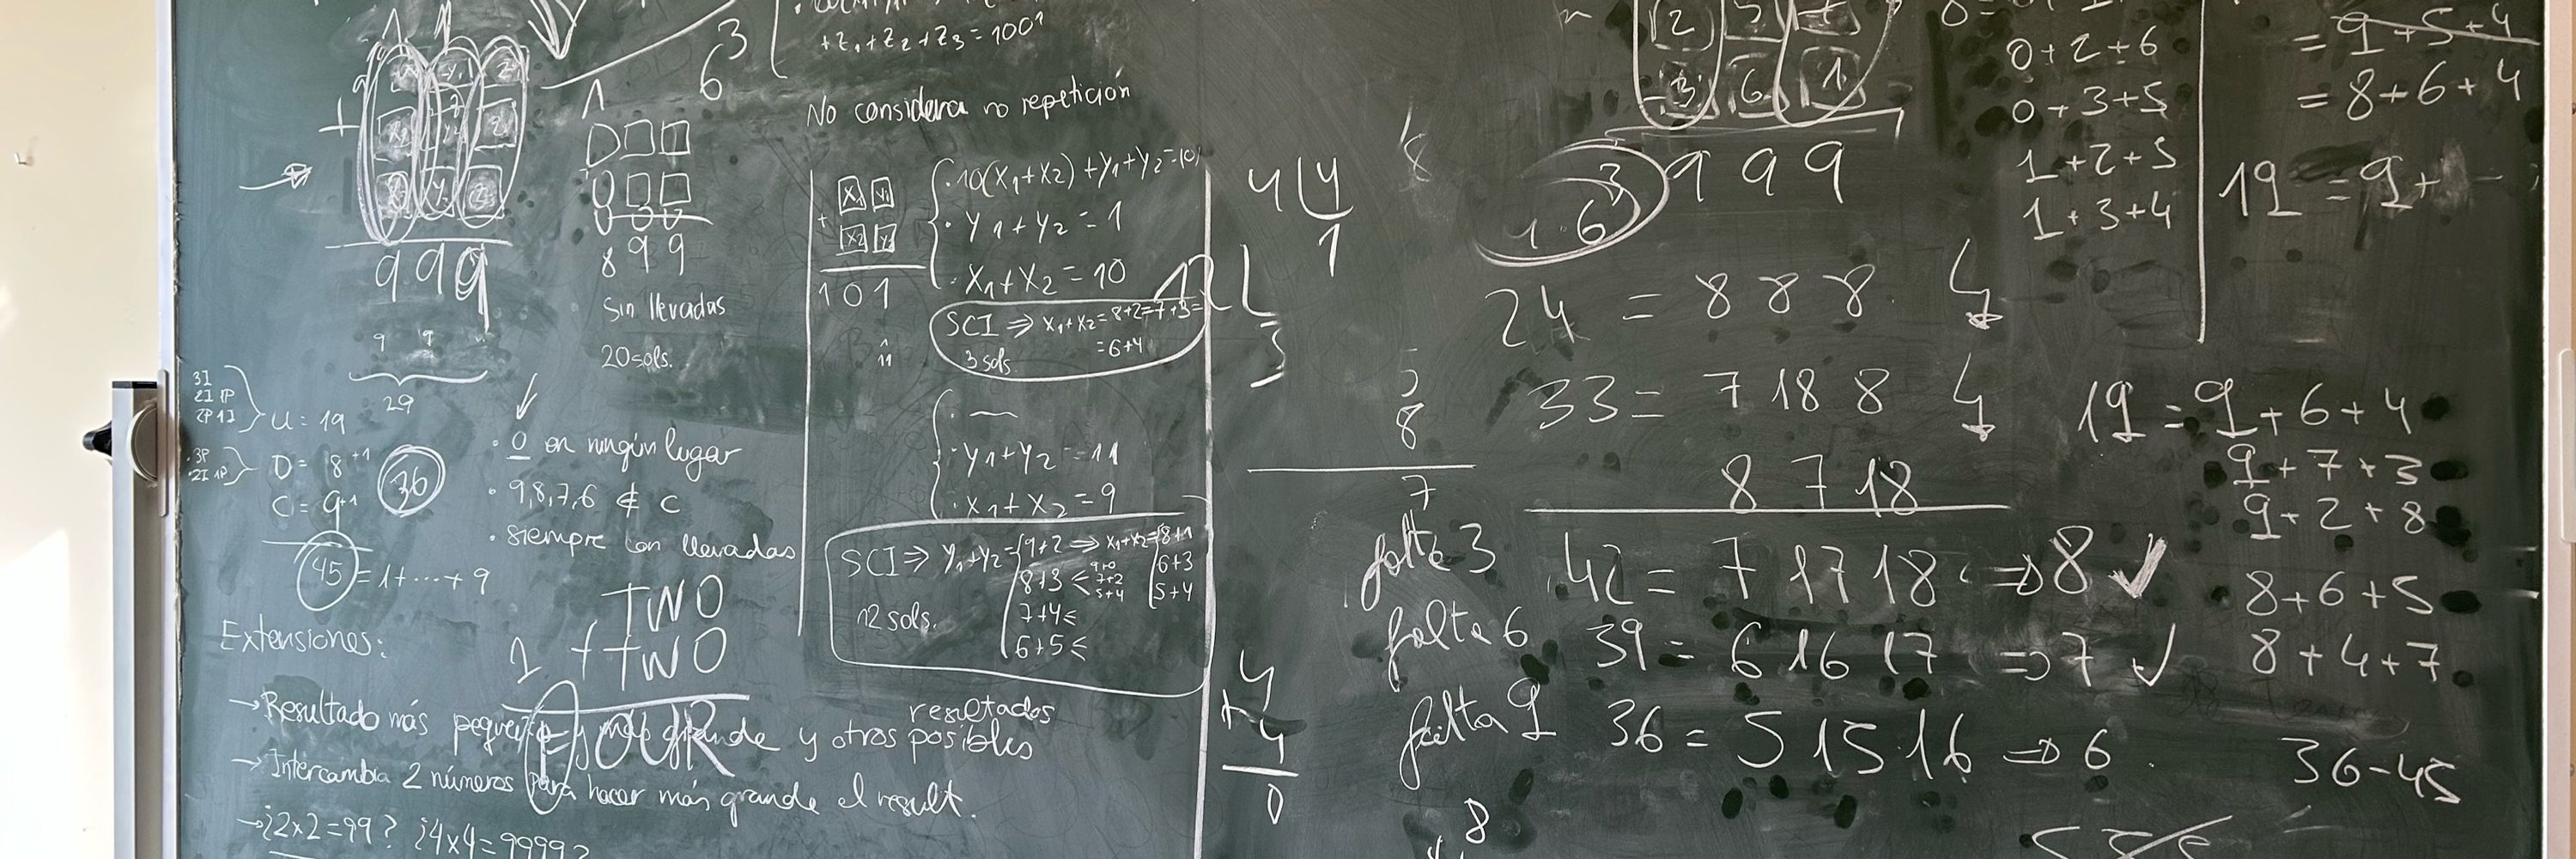 +z₁+z₂+z₃=1001
6³
999
29
3I
2I 1P
2P 1I
U=19
3P
2I 1P
D=8+1
C=9+1
36
45=1+...+9
899
Sin llevadas
20 sols.
· 0 en ningún lugar
· 9,8,7,6 ∉ C
· siempre con llevadas
TWO
+TWO
FOUR
Extensiones:
→Resultado más pequeño y más grande y otros resultados posibles
→Intercambia 2 números para hacer más grande el result.
→¿2x2=99? ¿4x4=9999?
No considera no repetición
x₁ y₁
+ x₂ y₂
101
·10(x₁+x₂)+y₁+y₂=101
·y₁+y₂=1
·x₁+x₂=10
SCI ⇒ x₁+x₂=8+2=7+3=
=6+4
3 sols.
·y₁+y₂=11
·x₁+x₂=9
SCI ⇒ y₁+y₂= 9+2 ⇒ x₁+x₂= 8+1
6+3
5+4
8+3 ≤ 9+0
7+2
5+4
7+4≤
6+5≤
12 sols.
4 4
1
12
3
5
8
7
4
+4
0
8
2 5 7
3 6 1
999
24 = 8 8 8
33 = 7 18 8
8 7 18
falta 3 42 = 7 17 18 ⇒ 8 ✓
falta 6 39 = 6 16 17 ⇒ 7 ✓
falta 9 36 = 5 15 16 ⇒ 6
0+2+6
0+3+5
1+2+5
1+3+4
=9+5+4
=8+6+4
19=9+
19=9+6+4
9+7+3
9+2+8
8+6+5
8+4+7
36-45